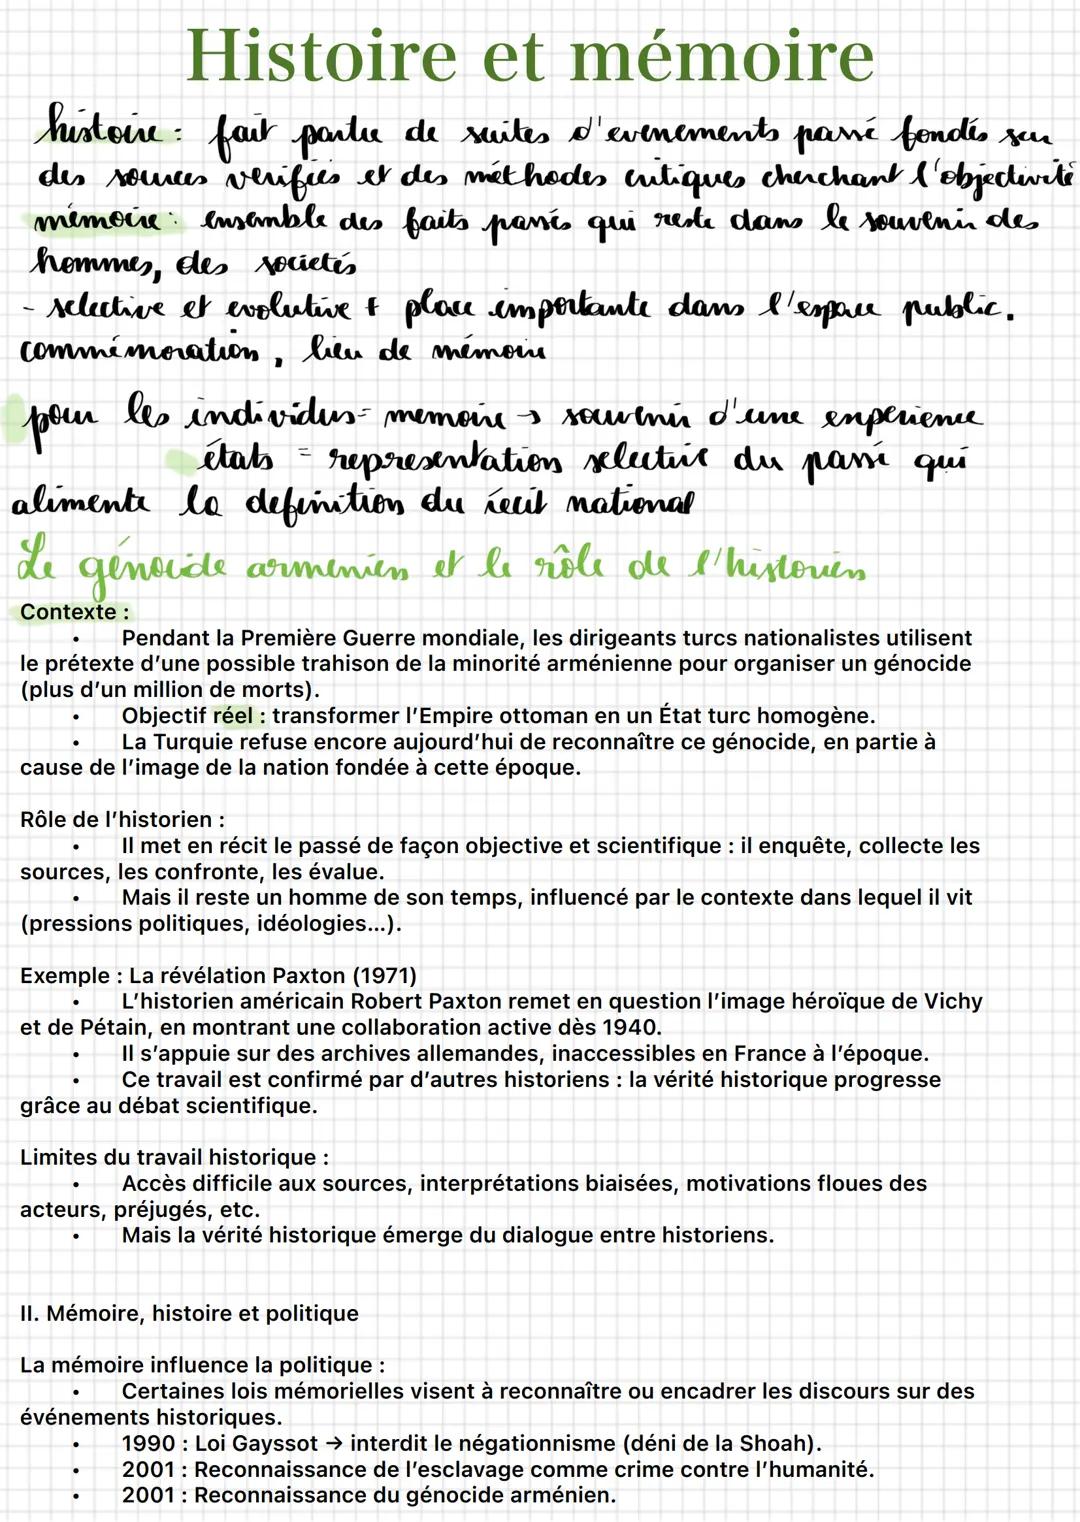 Histoire et mémoire
histoire : fait partie de suites d'evenements passé fondés sur
des sources verifiés et des méthodes critiques cherchant l'objectivité
mémoire : ensemble des faits passés qui reste dans le souvenir des
hommes, des societés
- selective et evolutive + place importante dans l'espace public.
commémoration, lieu de mémoire
pour les individus = memoire → souvenir d'une experience
états = representation selective du passé qui
alimente la definition du récit national
Le génocide armenien et le rôle de l'historien
Contexte :
• Pendant la Première Guerre mondiale, les dirigeants turcs nationalistes utilisent
le prétexte d'une possible trahison de la minorité arménienne pour organiser un génocide
(plus d'un million de morts).
• Objectif réel : transformer l'Empire ottoman en un État turc homogène.
• La Turquie refuse encore aujourd'hui de reconnaître ce génocide, en partie à
cause de l'image de la nation fondée à cette époque.
Rôle de l'historien :
• Il met en récit le passé de façon objective et scientifique : il enquête, collecte les
sources, les confronte, les évalue.
• Mais il reste un homme de son temps, influencé par le contexte dans lequel il vit
(pressions politiques, idéologies...).
Exemple : La révélation Paxton (1971)
• L'historien américain Robert Paxton remet en question l'image héroïque de Vichy
et de Pétain, en montrant une collaboration active dès 1940.
• Il s'appuie sur des archives allemandes, inaccessibles en France à l'époque.
• Ce travail est confirmé par d'autres historiens : la vérité historique progresse
grâce au débat scientifique.
Limites du travail historique :
• Accès difficile aux sources, interprétations biaisées, motivations floues des
acteurs, préjugés, etc.
• Mais la vérité historique émerge du dialogue entre historiens.
II. Mémoire, histoire et politique
La mémoire influence la politique :
• Certaines lois mémorielles visent à reconnaître ou encadrer les discours sur des
événements historiques.
• 1990 : Loi Gayssot → interdit le négationnisme (déni de la Shoah).
• 2001 : Reconnaissance de l'esclavage comme crime contre l'humanité.
• 2001 : Reconnaissance du génocide arménien.